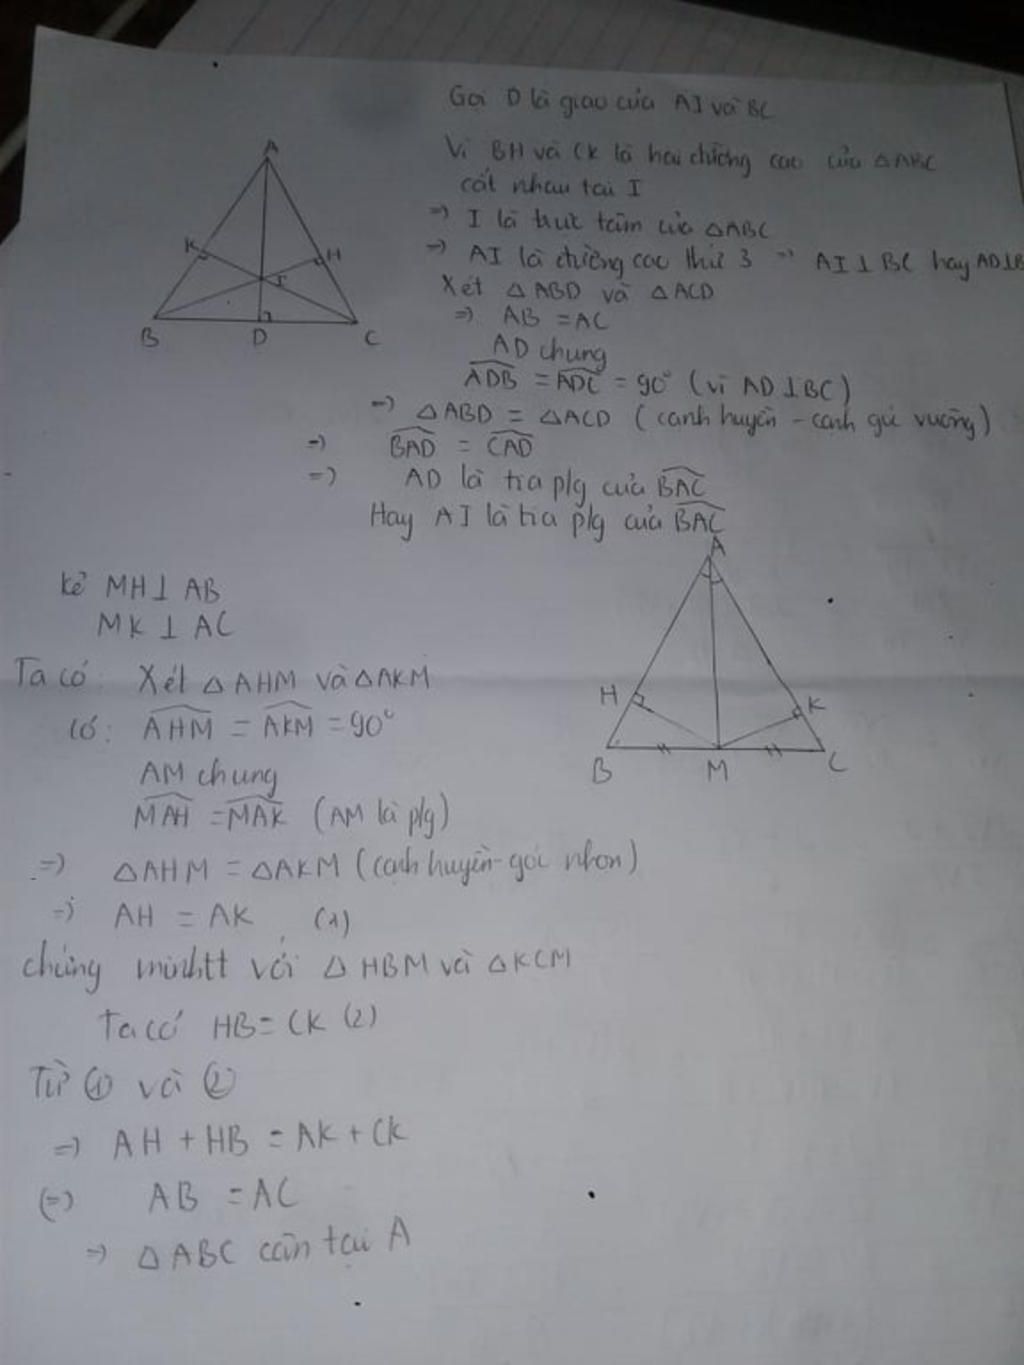 Gọi D là giao của AI và BC
Vì BH và CK là hai đường cao của △ABC
cắt nhau tại I
=> I là trực tâm của △ABC
=> AI là đường cao thứ 3 => AI ⊥ BC hay AD⊥B
Xét △ABD và △ACD
=> AB = AC
AD chung
ADB = ADC = 90° (vì AD⊥BC)
=> △ABD = △ACD (cạnh huyền - cạnh góc vuông)
=> BAD = CAD
=> AD là tia p/g của BAC
Hay AI là tia p/g của BAC
A
K
H
I
B
D
C
kẻ MH ⊥ AB
MK ⊥ AC
Ta có: Xét △AHM và △AKM
có: AHM = AKM = 90°
AM chung
MAH = MAK (AM là p/g)
=> △AHM = △AKM (cạnh huyền - góc nhọn)
=> AH = AK (1)
chứng minh tt với △HBM và △KCM
Ta có HB = CK (2)
Từ (1) và (2)
=> AH + HB = AK + CK
(=) AB = AC
=> △ABC cân tại A
A
H
K
B
M
C